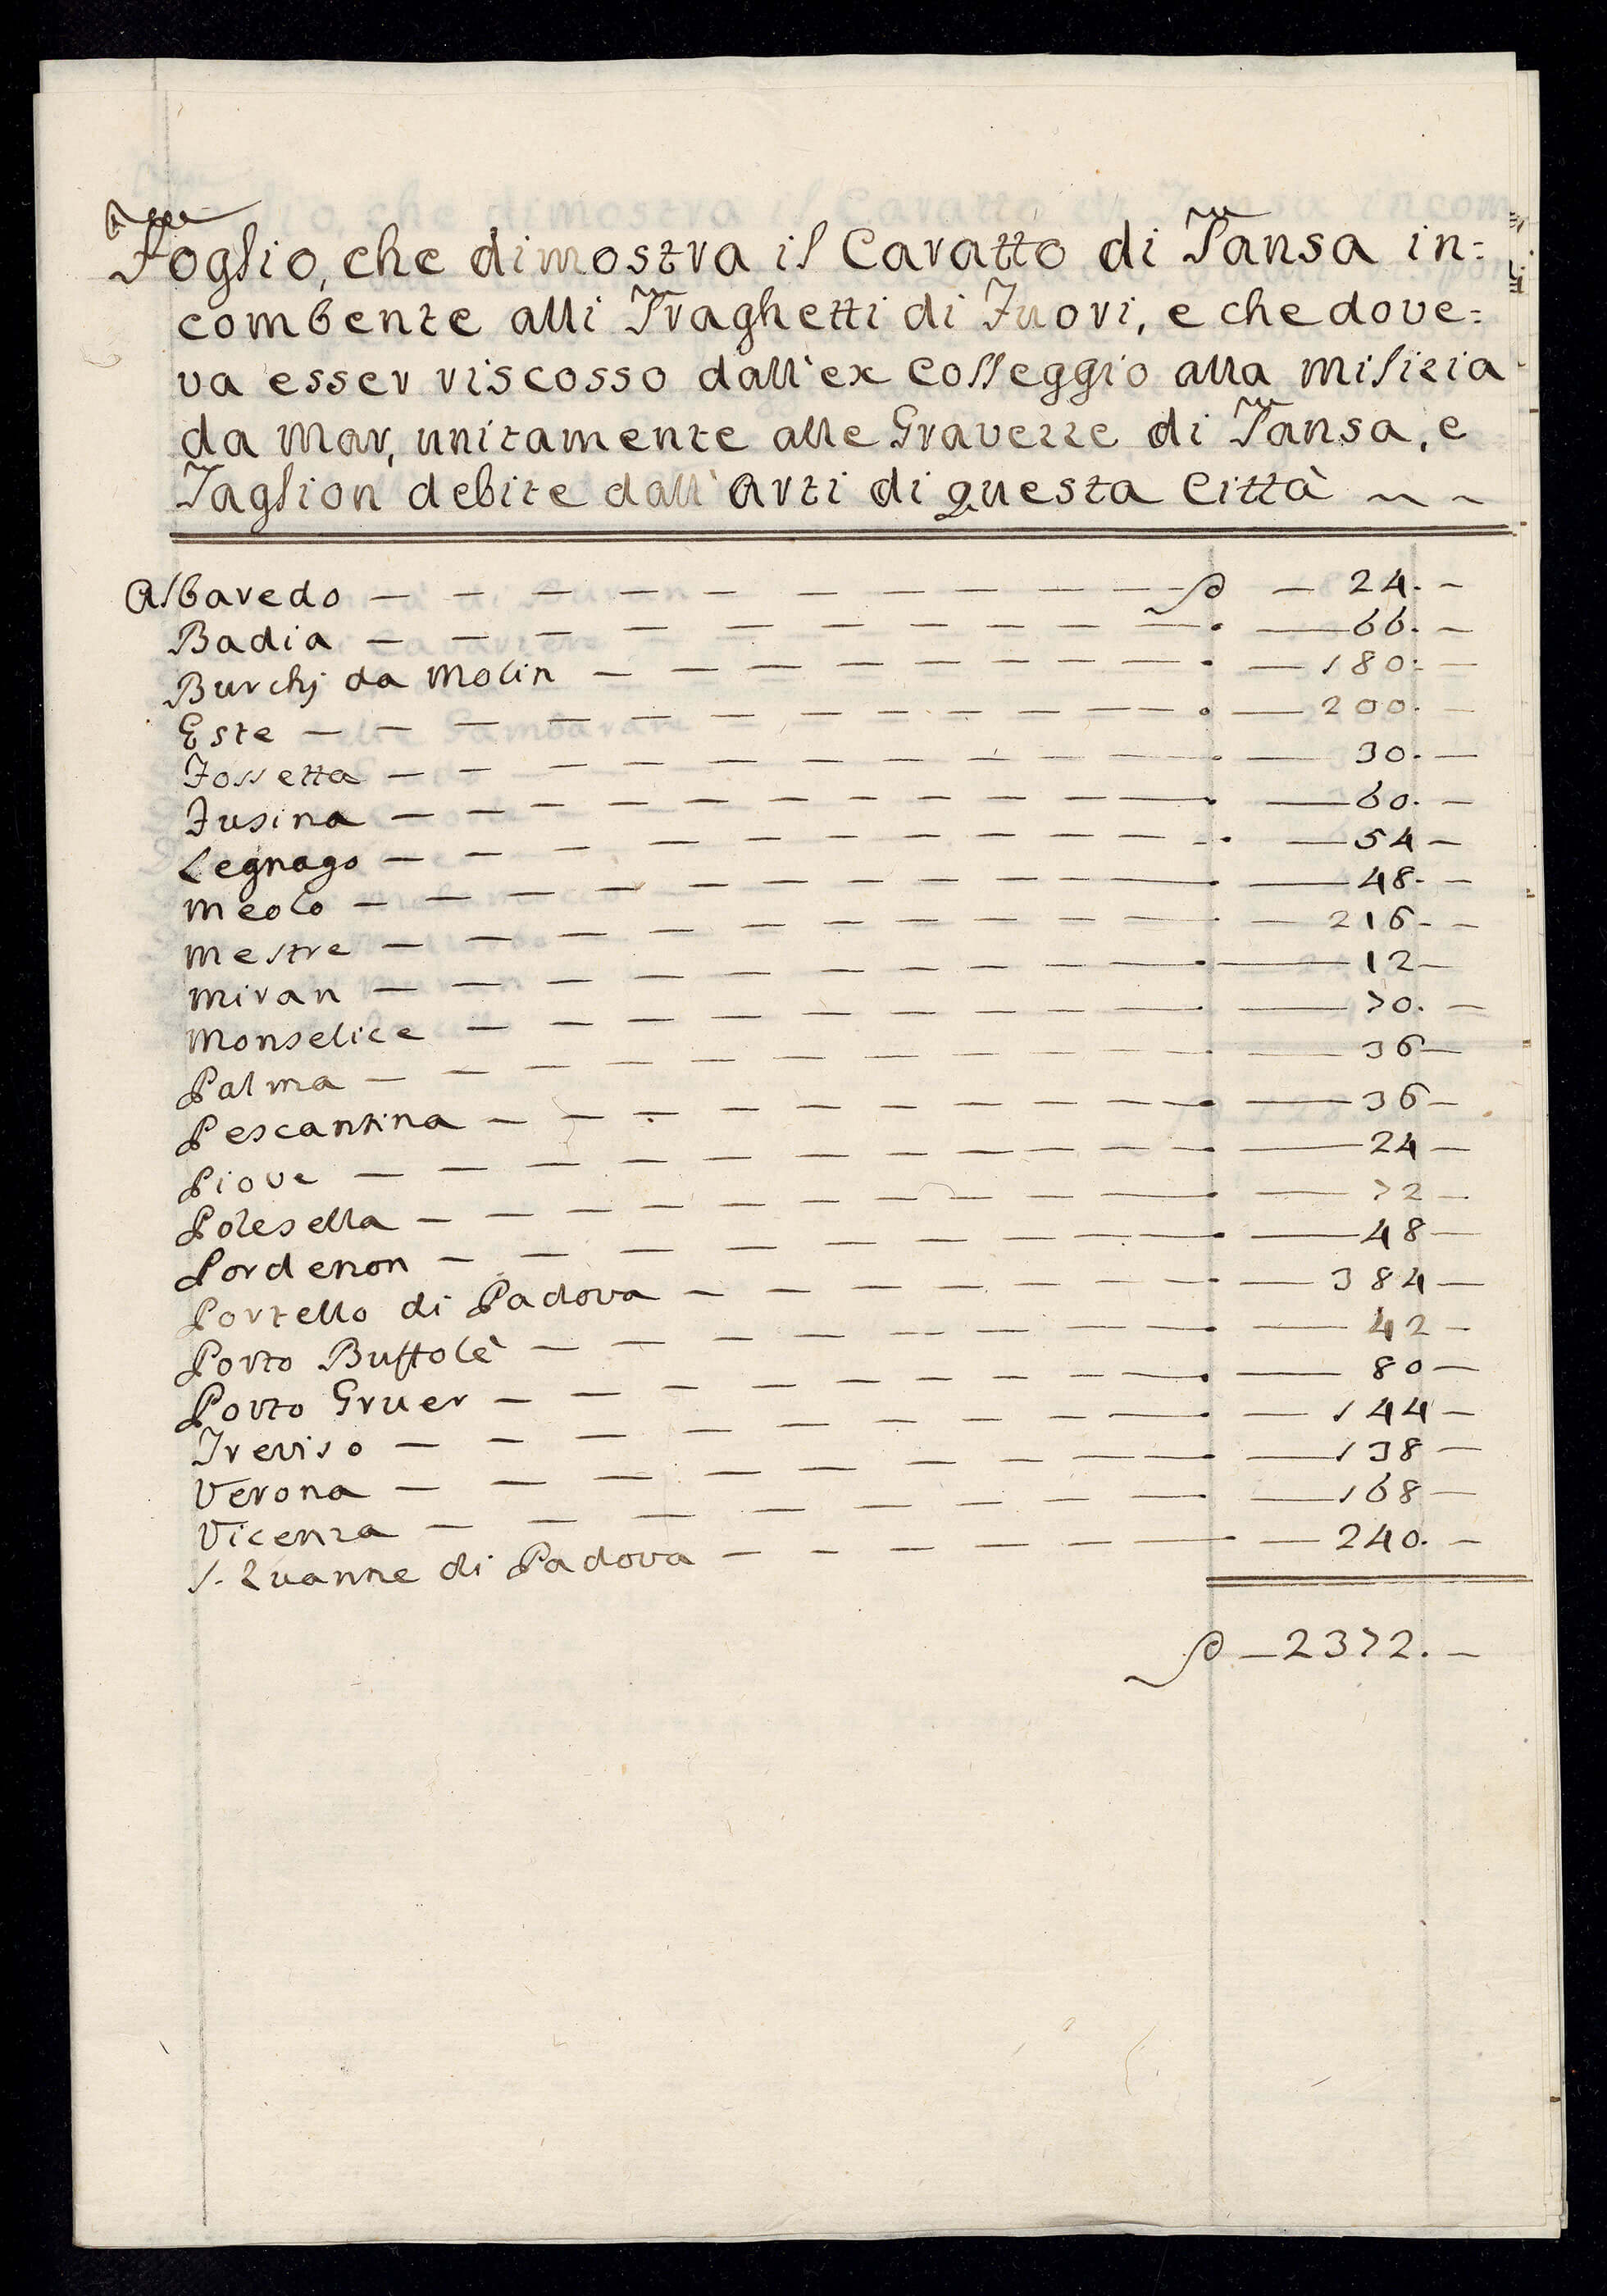 Foglio, che dimostra il Caratto di Tansa in=
combente alli Traghetti di Fuori, e che dove=
va esser riscosso dall'ex Colleggio alla milizia
da mar, unitamente alle Gravezze di Tansa, e
Taglion debite dall'Arti di questa Città
Albaredo — 24. —
Badia — 66. —
Burchj da Molin — 180. —
Este — 200. —
Fossetta — 30. —
Fusina — 60. —
Legnago — 54 —
Meolo — 48. —
Mestre — 216. —
Miran — 12 —
Monselice — 70. —
Palma — 36 —
Pescantina — 36 —
Piove — 24 —
Polesella — 72 —
Pordenon — 48 —
Portello di Padova — 384 —
Porto Buffolè — 42 —
Porto Gruer — 80 —
Treviso — 144 —
Verona — 138 —
Vicenza — 168 —
S. Zuanne di Padova — 240. —
2372. —